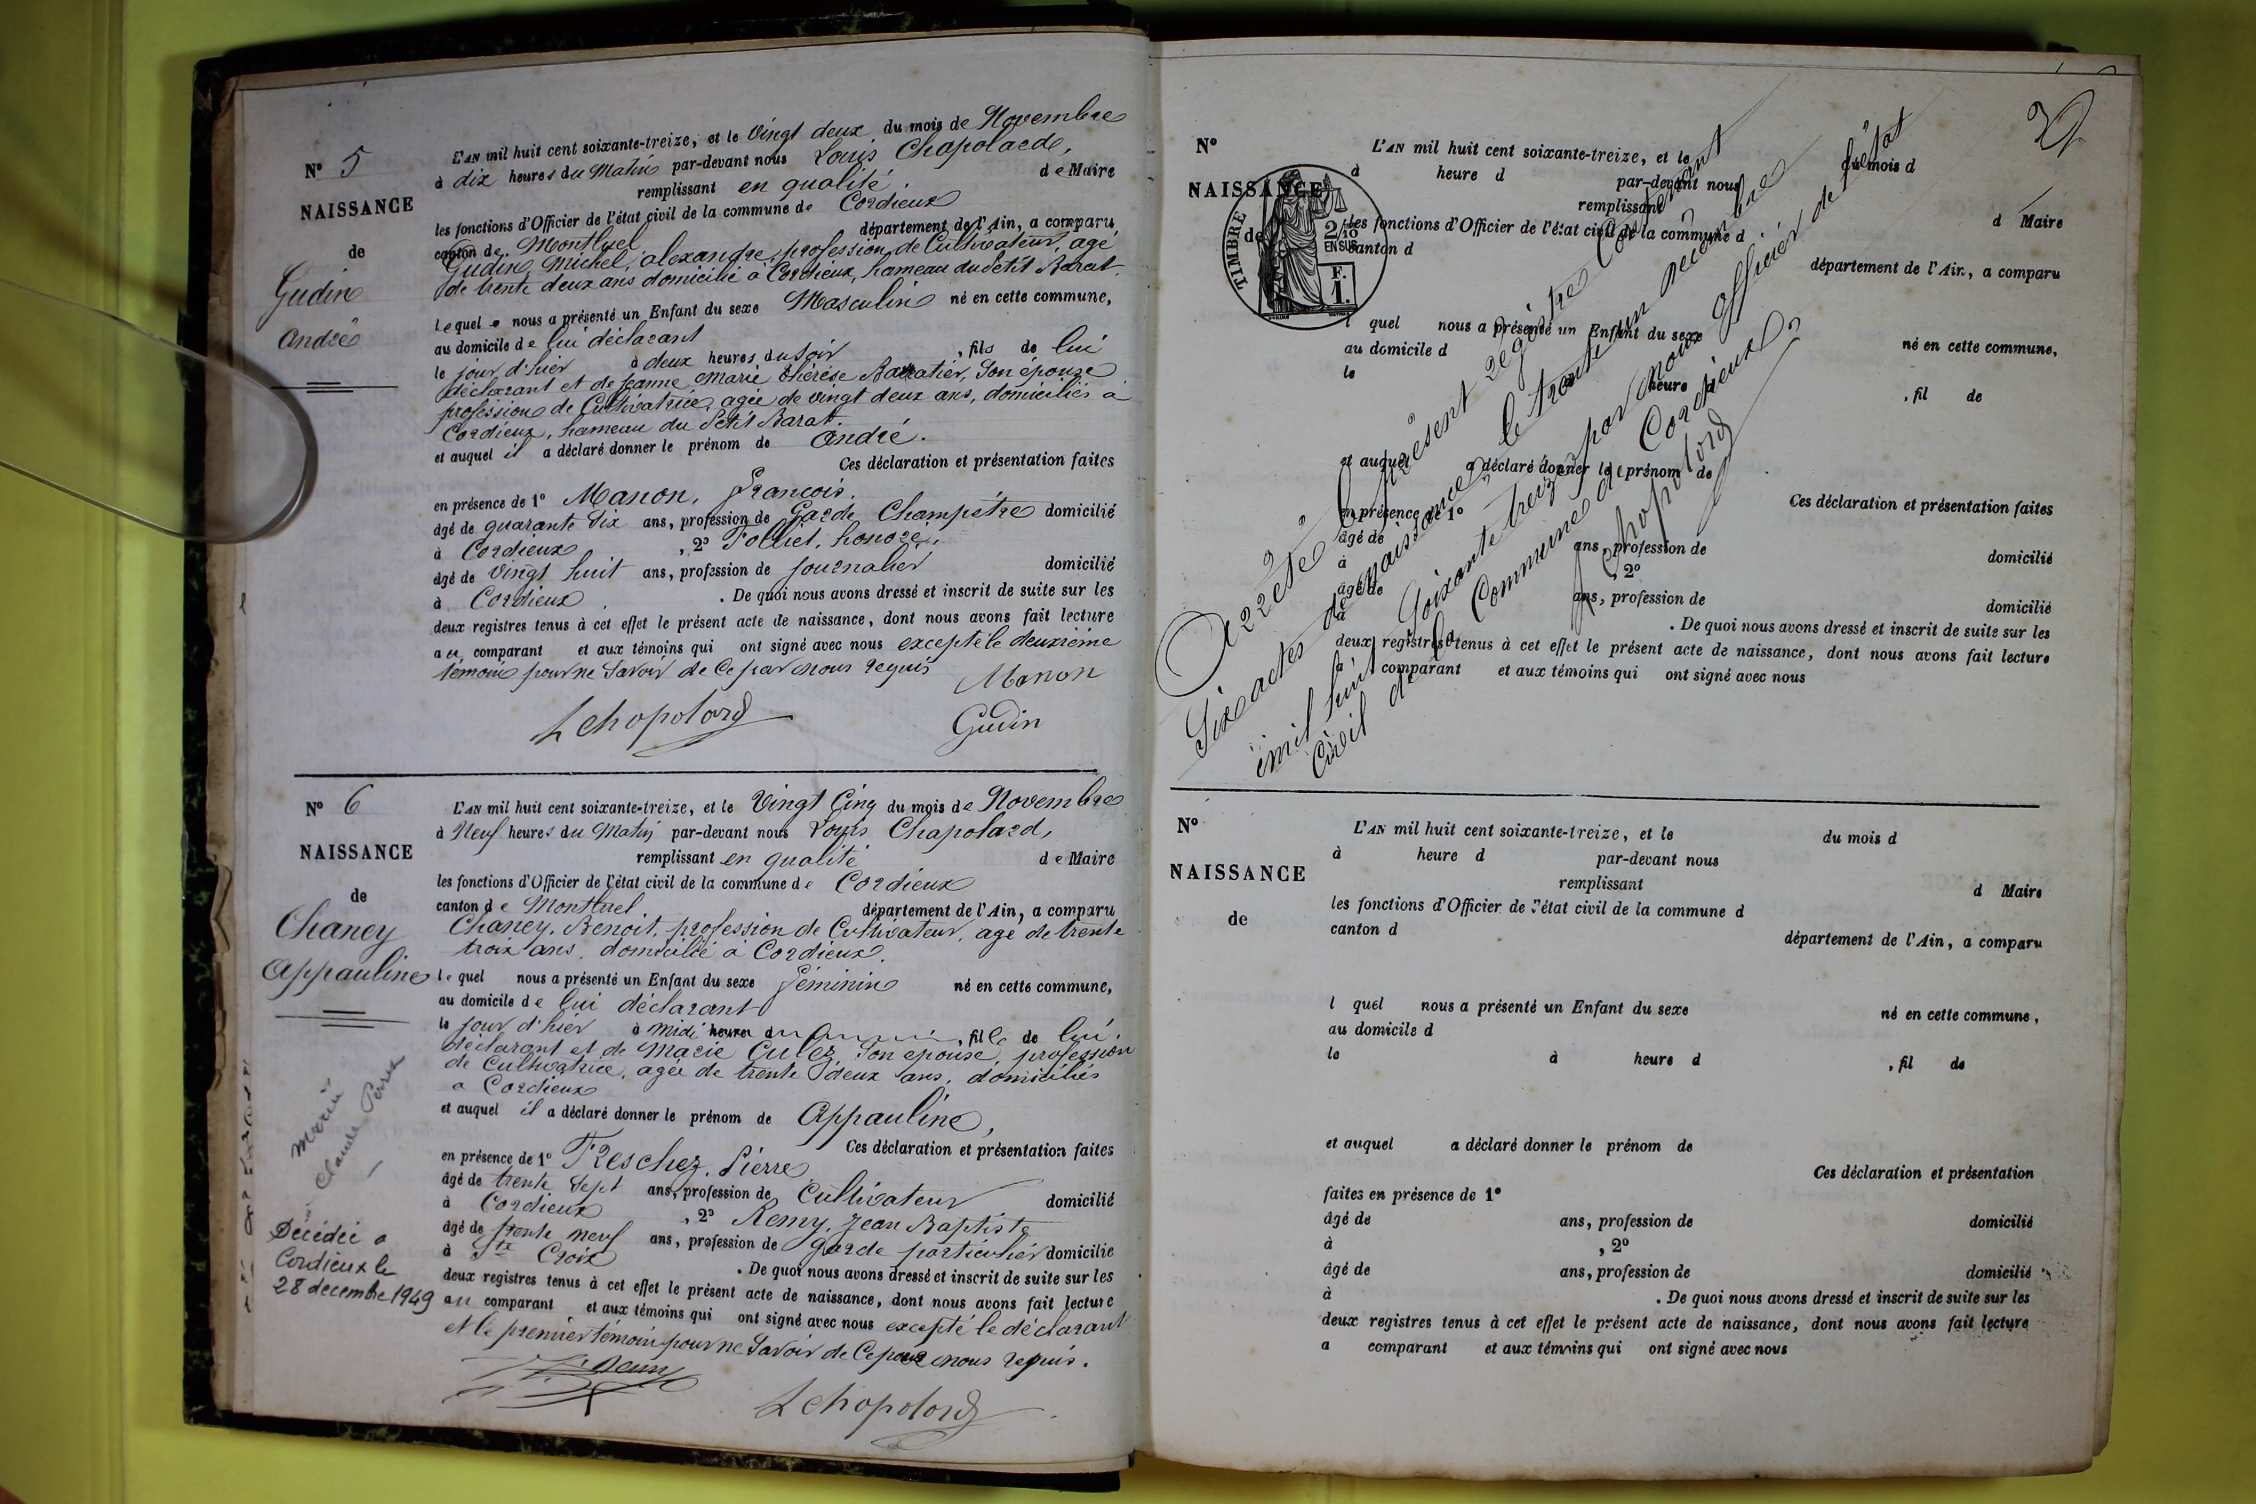 N° 5
NAISSANCE
de
Gudin
André
L'AN mil huit cent soixante-treize, et le Vingt deux du mois de Novembre
à dix heures du Matin par-devant nous Louis Chapolard,
remplissant en qualité de Maire
les fonctions d'Officier de l'état civil de la commune de Cordieux
canton de Montluel département de l'Ain, a comparu
Gudin, Michel, alexandre, profession de Cultivateur, agé
de trente deux ans domicilié à Cordieux, hameau du Petit Barat.
lequel nous a présenté un Enfant du sexe Masculin né en cette commune,
au domicile de lui déclarant
le jour d'hier à deux heures du soir, fils de lui
déclarant et de jeanne Marie thérèse Barratier, Son épouse
profession de Cultivatrice, agée de vingt deux ans, domiciliés à
Cordieux, hameau du Petit Barat.
et auquel il a déclaré donner le prénom de andré.
Ces déclaration et présentation faites
en présence de 1° Manon, François.
âgé de quarante Six ans, profession de Garde Champêtre domicilié
à Cordieux, 2° Folliet, honoré,
âgé de Vingt huit ans, profession de journalier domicilié
à Cordieux. De quoi nous avons dressé et inscrit de suite sur les
deux registres tenus à cet effet le présent acte de naissance, dont nous avons fait lecture
au comparant et aux témoins qui ont signé avec nous excepté le deuxième
témoin pour ne Savoir de Ce par nous requis
Manon
L Chapolard
Gudin
N° 6
NAISSANCE
de
Chaney
Appauline
L'AN mil huit cent soixante-treize, et le Vingt Cinq du mois de Novembre
à Neuf heures du Matin par-devant nous Louis Chapolard,
remplissant en qualité de Maire
les fonctions d'Officier de l'état civil de la commune de Cordieux
canton de Montluel département de l'Ain, a comparu
Chaney, Benoit, profession de Cultivateur, agé de trente
trois ans, domicilié à Cordieux.
lequel nous a présenté un Enfant du sexe féminin né en cette commune,
au domicile de lui déclarant
le jour d'hier à midi heures du, fille de lui
déclarant et de Marie Culez, Son epouse, profession
de Cultivatrice, agée de trente deux ans, domiciliés
a Cordieux
et auquel il a déclaré donner le prénom de Appauline,
Ces déclaration et présentation faites
en présence de 1° Freschez, Pierre
âgé de trente Sept ans, profession de Cultivateur domicilié
à Cordieux, 2° Remy, Jean Baptiste
âgé de trente neuf ans, profession de garde particulier domicilié
à Ste Croix. De quoi nous avons dressé et inscrit de suite sur les
deux registres tenus à cet effet le présent acte de naissance, dont nous avons fait lecture
au comparant et aux témoins qui ont signé avec nous excepté le déclarant
et le premier témoin pour ne Savoir de Ce par nous requis.
L Chapolard
Claude Perret
Décédée a
Cordieux le
28 decembre 1949
N°
NAISSANCE
de
TIMBRE
2/10
EN SUS
F.
1.
L'AN mil huit cent soixante-treize, et le du mois d
à heure d par-devant nous
remplissant d Maire
les fonctions d'Officier de l'état civil de la commune d
canton d département de l'Ain, a comparu
l quel nous a présenté un Enfant du sexe né en cette commune,
au domicile d
le heure d, fil de
et auquel a déclaré donner le prénom de
Ces déclaration et présentation faites
en présence de 1°
âgé de ans, profession de domicilié
à, 2°
âgé de ans, profession de domicilié
à. De quoi nous avons dressé et inscrit de suite sur les
deux registres tenus à cet effet le présent acte de naissance, dont nous avons fait lecture
a comparant et aux témoins qui ont signé avec nous
Arrêté le présent régistre Contenant
Six actes de naissances, le trente un décembre
mil huit Soixante treize par nous officier de l'état
Civil de la Commune de Cordieux
L Chapolard
N°
NAISSANCE
de
L'AN mil huit cent soixante-treize, et le du mois d
à heure d par-devant nous
remplissant d Maire
les fonctions d'Officier de l'état civil de la commune d
canton d département de l'Ain, a comparu
l quel nous a présenté un Enfant du sexe né en cette commune,
au domicile d
le à heure d, fil de
et auquel a déclaré donner le prénom de
Ces déclaration et présentation
faites en présence de 1°
âgé de ans, profession de domicilié
à, 2°
âgé de ans, profession de domicilié
à. De quoi nous avons dressé et inscrit de suite sur les
deux registres tenus à cet effet le présent acte de naissance, dont nous avons fait lecture
a comparant et aux témoins qui ont signé avec nous